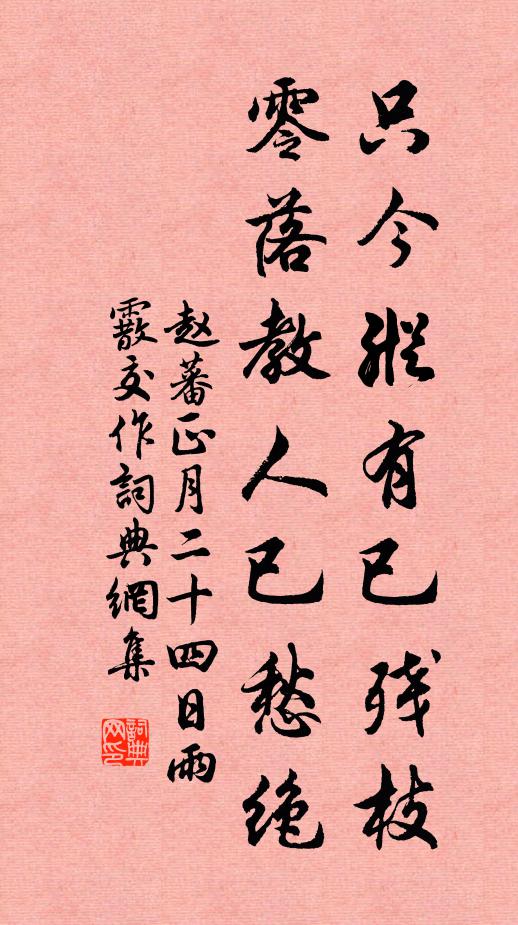 只今縱有已残枝
零落教人已愁绝
赵蕃正月二十四日雨
霰交作詞典網集
詞典
网印